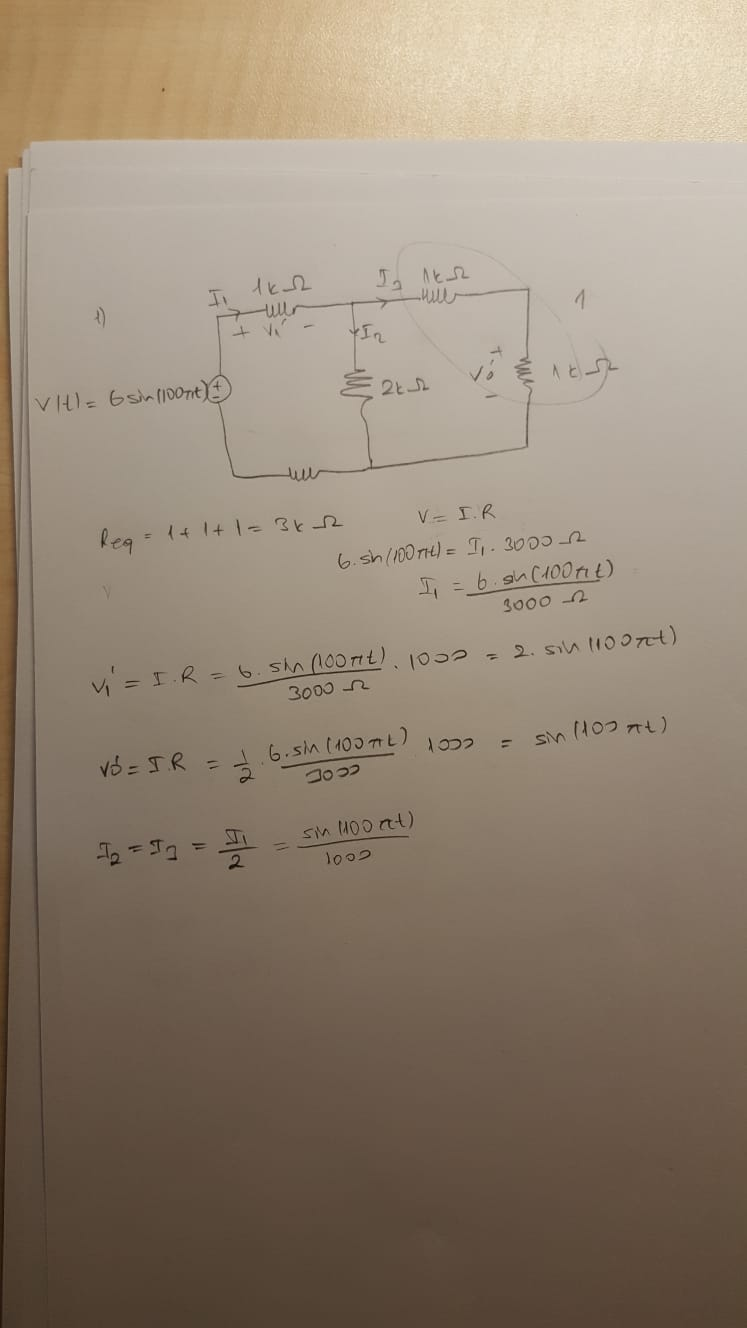 1)
I₁ 1kΩ I₃ 1kΩ 1
+ V₁' - I₂
V(t) = 6 sin(100πt) + - 2kΩ Vo' + - 1kΩ
Req = 1 + 1 + 1 = 3k Ω V = I.R
6. sin(100πt) = I₁ . 3000 Ω
I₁ = 6. sin(100πt) / 3000 Ω
V₁' = I.R = 6. sin(100πt) / 3000 Ω . 1000 = 2. sin(100πt)
Vo' = I.R = 1/2 . 6. sin(100πt) / 3000 1000 = sin(100πt)
I₂ = I₃ = I₁ / 2 = sin(100πt) / 1000